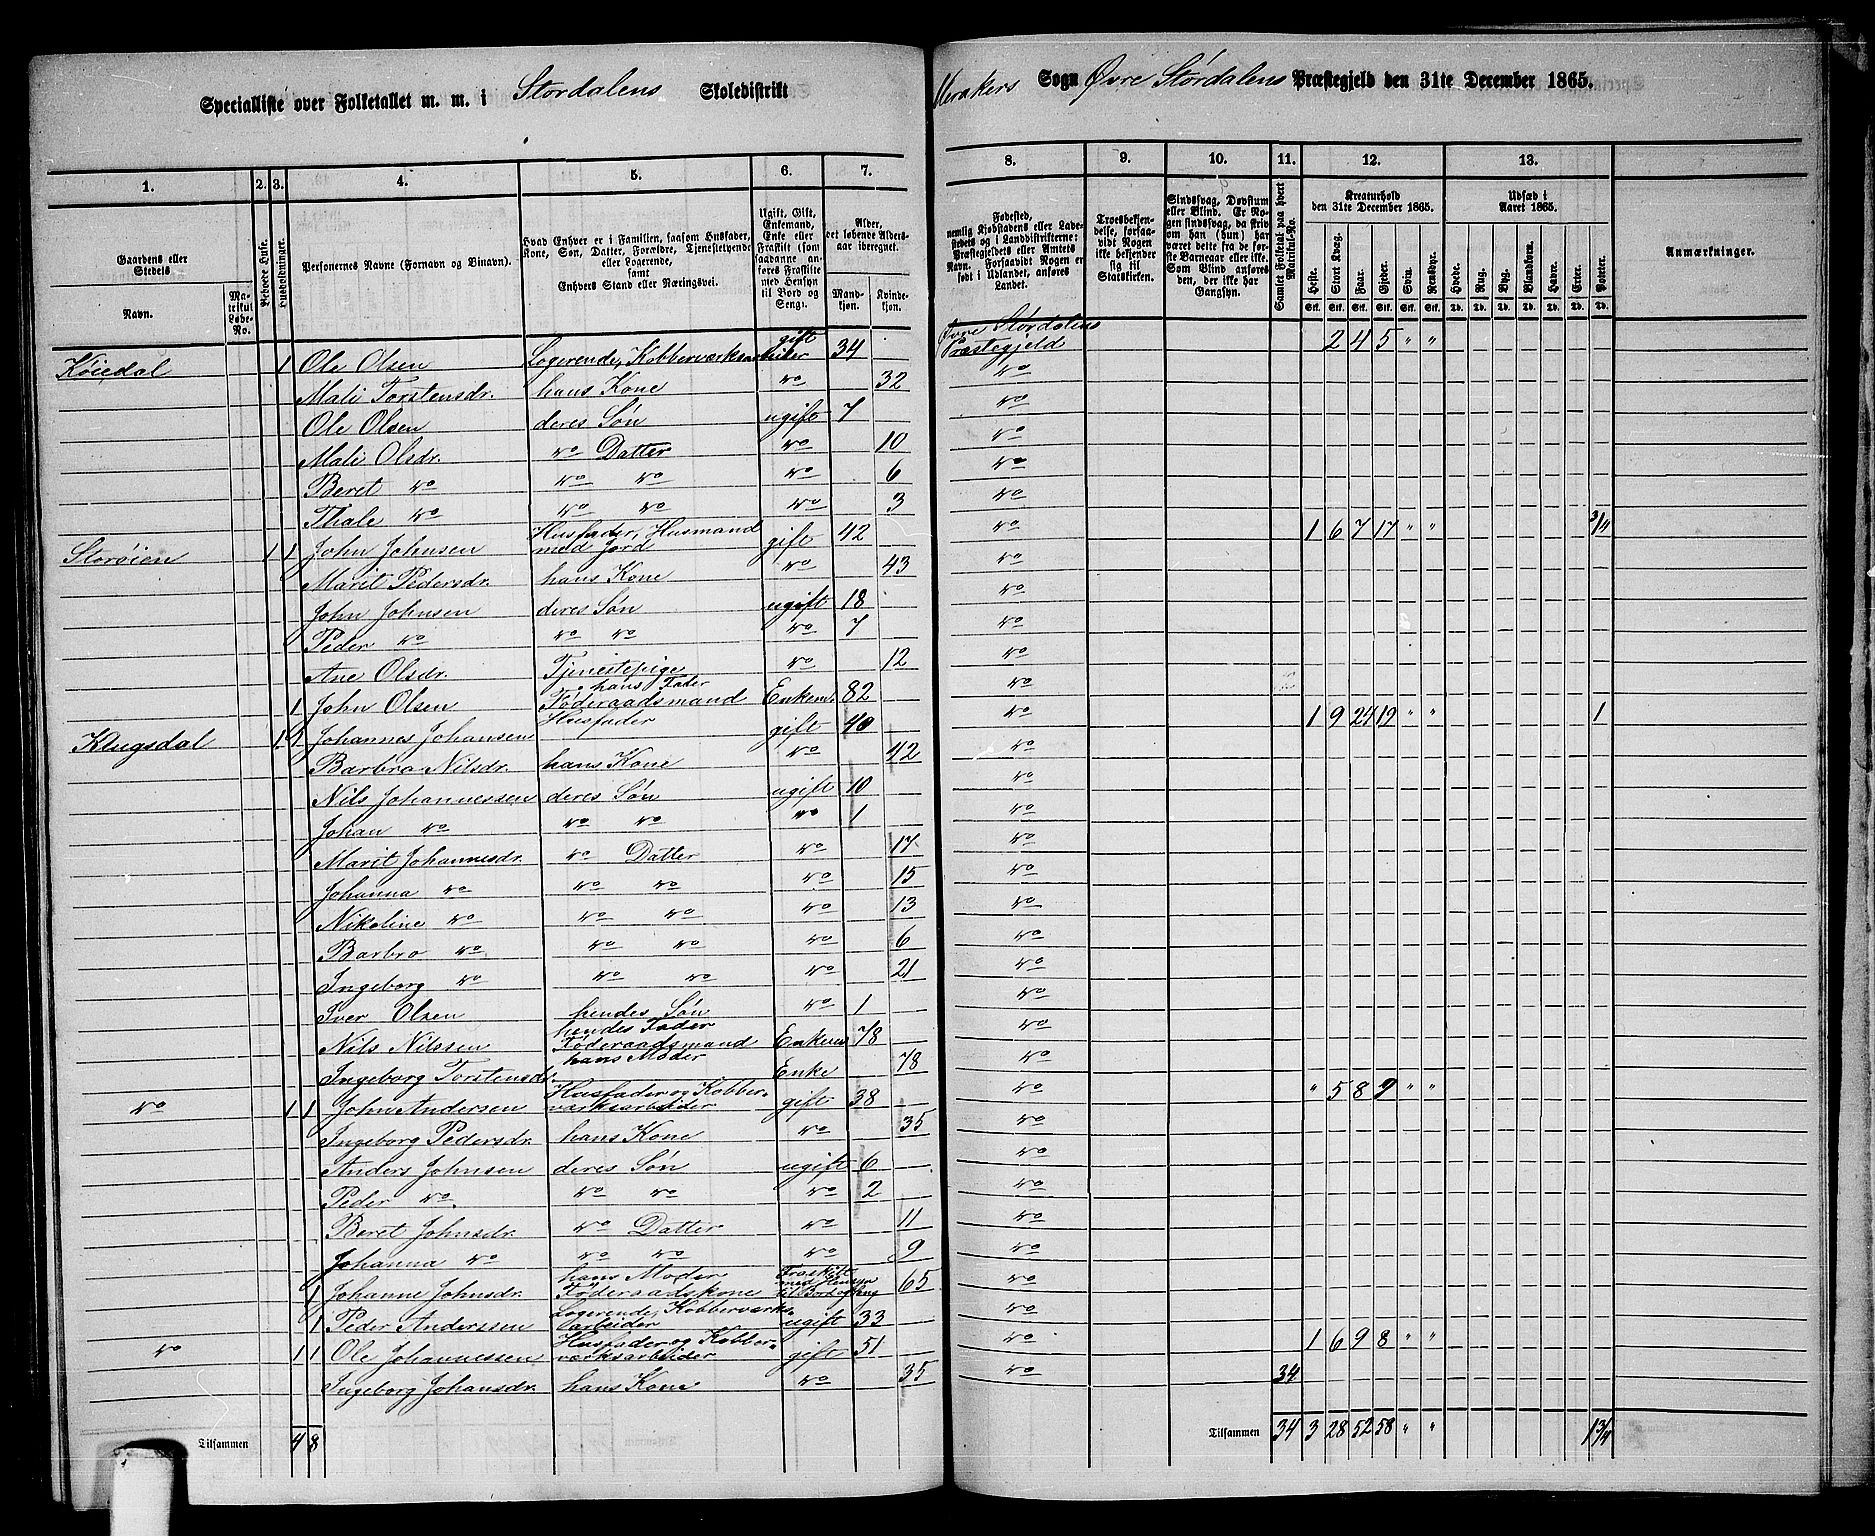 Specialliste over Folketallet m. m. i Stordalens Skoledistrikt
Merakers Sogn Øvre Størdalens Præstegjeld den 31te December 1865.
1. 2. 3. 4. 5. 6. 7. 8. 9. 10. 11. 12. 13.
Gaardenes eller Stedets
Navn.
Matrikul Løbe-No.
Beboede Huse.
Husholdninger.
Personernes Navne (Fornavn og Binavn).
Hvad Enhver er i Familien, saasom Husfader, Kone, Søn, Datter, Forældre, Tjenestetyende eller Logerende, samt
Enhvers Stand eller Næringsvei.
Ugift, Gift, Enkemand, Enke eller Fraskilt (som saadanne anføres Fraskilte med Hensyn til Bord og Seng).
Alder, det løbende Aldersaar iberegnet.
Mandkjøn. Kvindekjøn.
Fødested, nemlig Kjøbstadens eller Ladestedets og i Landdistrikterne: Præstegjeldets eller Amtets Navn. Forsaavidt Nogen er født i Udlandet, anføres Landet.
Troesbekjendelse, forsaavidt Nogen ei bekjender sig til Statskirken.
Sindssvag, Døvstum eller Blind. Er Nogen sindssvag, da tilskrives han (hun) har været dette fra de første Barneaar eller ikke. Som Blind anføres den, der ikke har Gangsyn.
Samlet Folketal paa hvert Matrikul-No.
Kreaturhold den 31te December 1865.
Heste. Stort Kvæg. Faar. Gjeder. Svin. Rensdyr.
Udsæd i Aaret 1865.
Hvede. Rug. Byg. Blandkorn. Havre. Erter. Poteter.
Anmærkninger.
Køiedal 1 Ole Olsen Logerende, Kobberværksarbeider gift 34 Øvre Størdalens Præstegjeld 2 4 5 " "
Mali Torstensdr. hans Kone do 32 do
Ole Olsen deres Søn ugift 7 do
Mali Olsdr. do Datter do 10 do
Beret do do do do 6 do
Thale do do do do 3 do
Storøien 1 1 John Johnsen Husfader, Husmand med Jord gift 42 do 1 6 7 17 " " 3/4
Marit Pedersdr. hans Kone do 43 do
John Johnsen deres Søn ugift 18 do
Peder do do do do 7 do
Ane Olsdr. Tjenestepige do 12 do
1 John Olsen hans Fader Føderaadsmand Enkem. 82 do
Klugsdal 1 1 Johannes Johansen Husfader gift 40 do 1 9 24 19 " " 1
Barbro Nilsdr. hans Kone do 42 do
Nils Johannessen deres Søn ugift 10 do
Johan do do do do 1 do
Marit Johannesdr. do Datter do 17 do
Johanna do do do do 15 do
Nikoline do do do do 13 do
Barbro do do do do 6 do
Ingeborg do do do do 21 do
Iver Olsen hendes Søn do 1 do
Nils Nilssen hendes Fader Føderaadsmand Enkem 78 do
Ingeborg Torstensdr. hans Moder Enke 78 do
do 1 1 John Andersen Husfader og Kobberværksarbeider gift 38 do " 5 8 7 " "
Ingeborg Pedersdr. hans Kone do 35 do
Anders Johnsen deres Søn ugift 6 do
Peder do do do do 2 do
Beret Johnsdr. do Datter do 11 do
Johanna do do do do 9 do
1 Johanne Johnsdr. hans Moder Føderaadskone Fraskilt med Hensyn til Bord og Seng 65 do
1 Peder Anderssen Logerende, Kobberværksarbeider ugift 33 do
do 1 1 Ole Johannessen Husfader og Kobberværksarbeider gift 51 do 1 6 9 8 " "
Ingeborg Johansdr. hans Kone do 35 do 34
Tilsammen 4 8
Tilsammen 34 3 28 52 58 " " 1 3/4